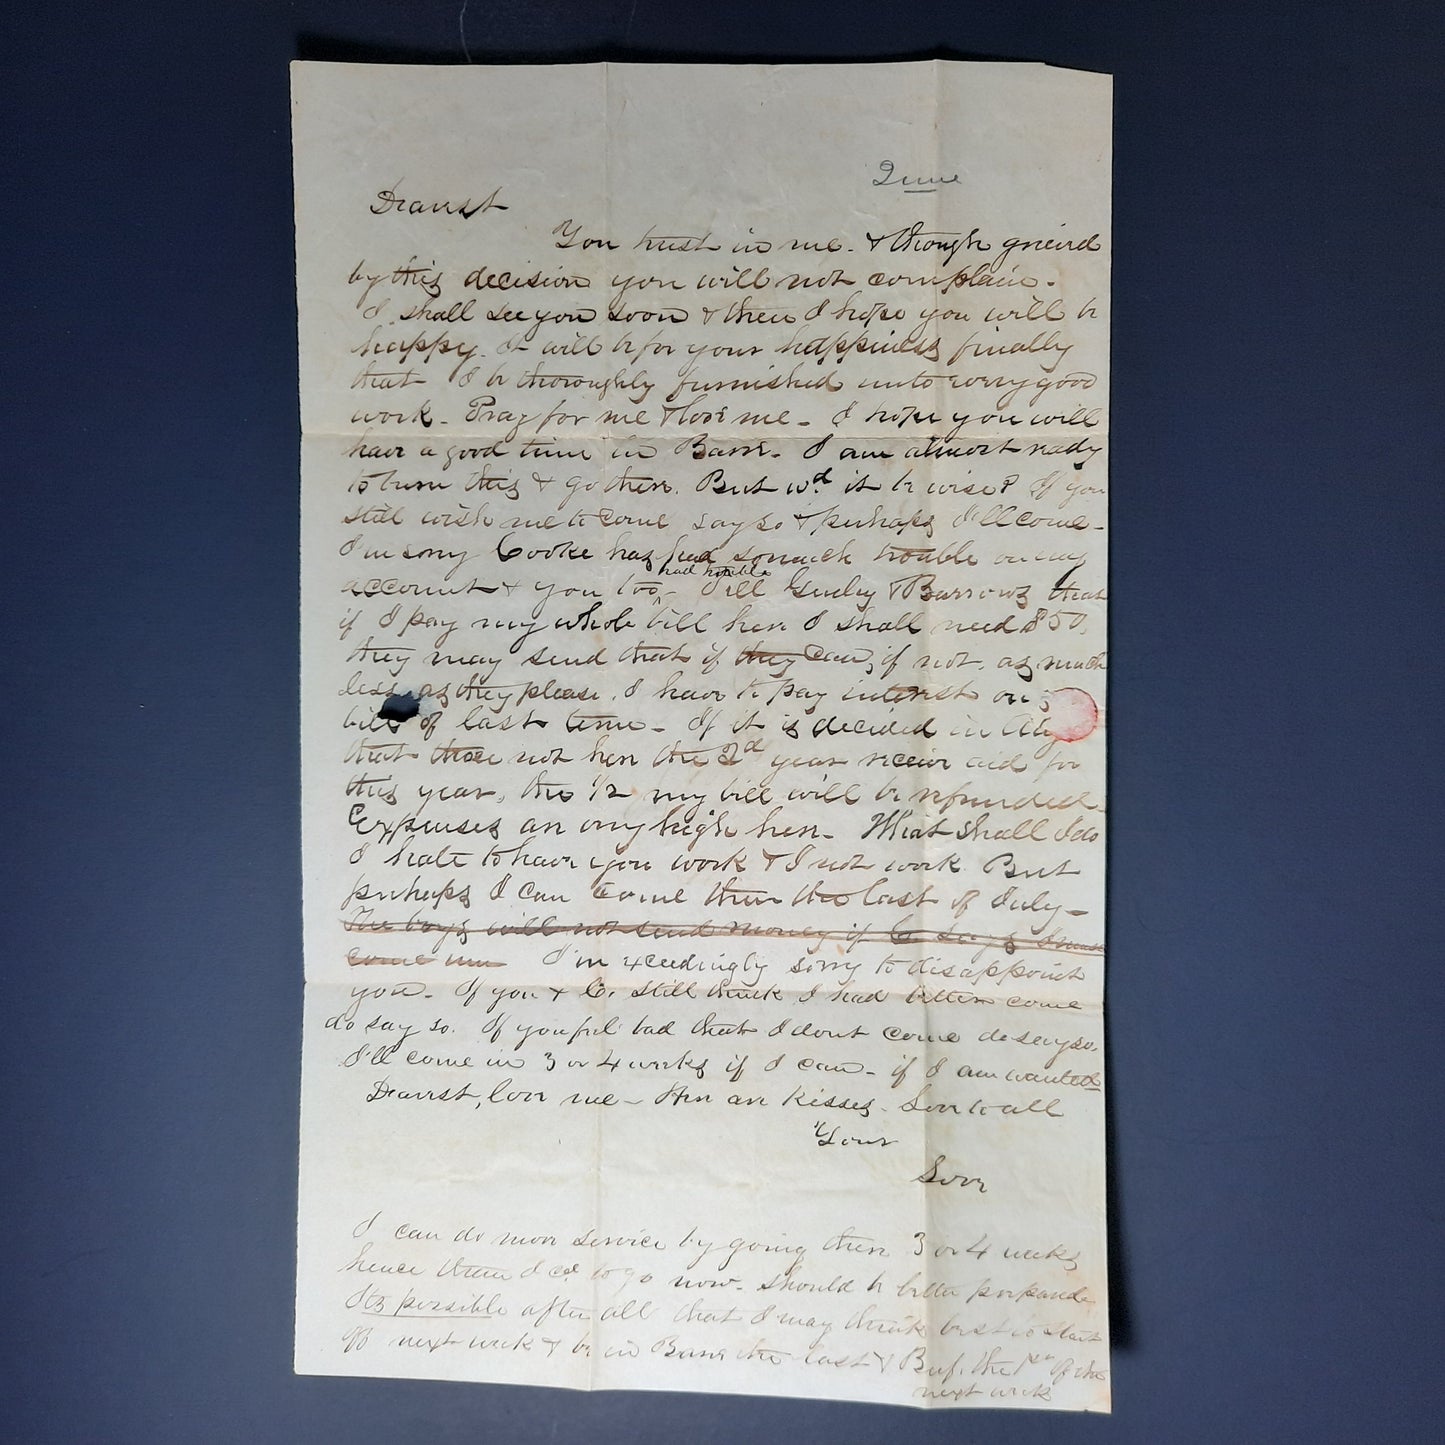 June
Dearest
You trust in me. & though grieved
by this decision you will not complain.
I shall see you soon & then I hope you will be
happy. It will be for your happiness finally
that I be thoroughly furnished unto every good
work. Pray for me & love me. I hope you will
have a good time in Barre. I am almost ready
to burn this & go there. But wd. it be wise? If you
still wish me to come say so & perhaps I'll come.
I'm sorry Cooke has had so much trouble on my
had trouble
account & you too. Tell & Barrows that
if I pay my whole bill here I shall need $50.
they may send that if they can, if not, as much
less as they please. I have to pay interest on
bill of last term. If it is decided in
that those not here the 2d year receive aid for
this year, the 1/2 my bill will be refunded
Expenses are very high here. What shall I do
I hate to have you work & I not work. But
perhaps I can come there the last of July
The boys will not send money if C. says I must
come now I'm exceedingly sorry to disappoint
you. If you & C. still think I had better come
do say so. If you feel bad that I dont come do say so.
I'll come in 3 or 4 weeks if I can. if I am wanted
Dearest, love me. Here are kisses. Love to all
Your
Love
I can do more service by going there 3 or 4 weeks
hence than I cd. to go now. should be better prepared
Its possible after all that I may think best to start
off next week & be in Barre the last & Buf. the 1st of the
next week